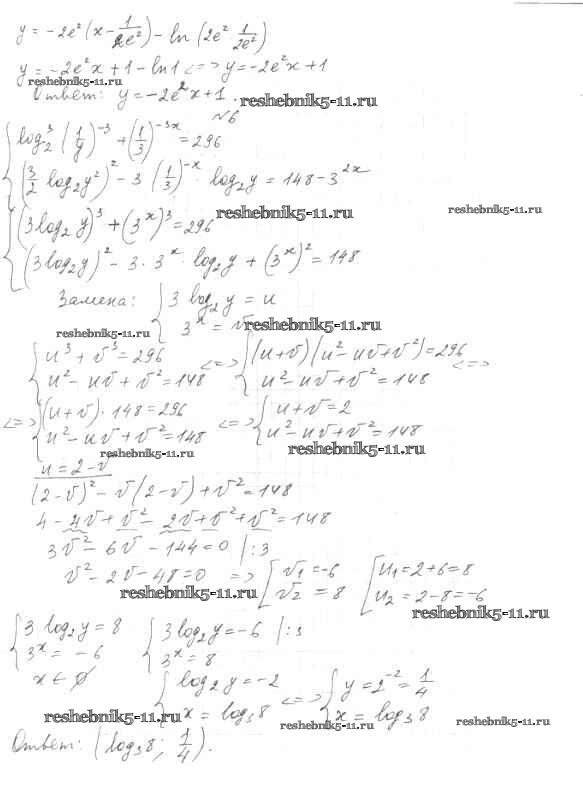 y = -2e² (x - 1/2e²) - ln (2e² · 1/2e²)
y = -2e²x + 1 - ln 1 <=> y = -2e²x + 1
reshebnik5-11.ru
Ответ: y = -2e²x + 1.
reshebnik5-11.ru
№6
log₂³ (1/y)⁻³ + (1/3)^(-3x) = 296
(3/2 log₂y²)² - 3 (1/3)^(-x) · log₂y = 148 - 3^(2x)
reshebnik5-11.ru reshebnik5-11.ru
(3log₂y)³ + (3^x)³ = 296
(3log₂y)² - 3 · 3^x · log₂y + (3^x)² = 148
Замена: { 3 log₂y = u
3^x = v
reshebnik5-11.ru reshebnik5-11.ru
{ u³ + v³ = 296 <=> { (u+v)(u² - uv + v²) = 296 <=>
u² - uv + v² = 148 u² - uv + v² = 148
<=> { (u+v) · 148 = 296 <=> { u + v = 2
u² - uv + v² = 148 u² - uv + v² = 148
reshebnik5-11.ru reshebnik5-11.ru
u = 2 - v
(2-v)² - v(2-v) + v² = 148
4 - 4v + v² - 2v + v² + v² = 148
3v² - 6v - 144 = 0 |:3
v² - 2v - 48 = 0 => [ v₁ = -6 [ u₁ = 2+6 = 8
v₂ = 8 u₂ = 2-8 = -6
reshebnik5-11.ru reshebnik5-11.ru
{ 3 log₂y = 8 { 3 log₂y = -6 |:3
3^x = -6 3^x = 8
x ∈ ∅ { log₂y = -2 <=> { y = 2⁻² = 1/4
x = log₃8 x = log₃8
reshebnik5-11.ru reshebnik5-11.ru reshebnik5-11.ru
Ответ: (log₃8; 1/4).